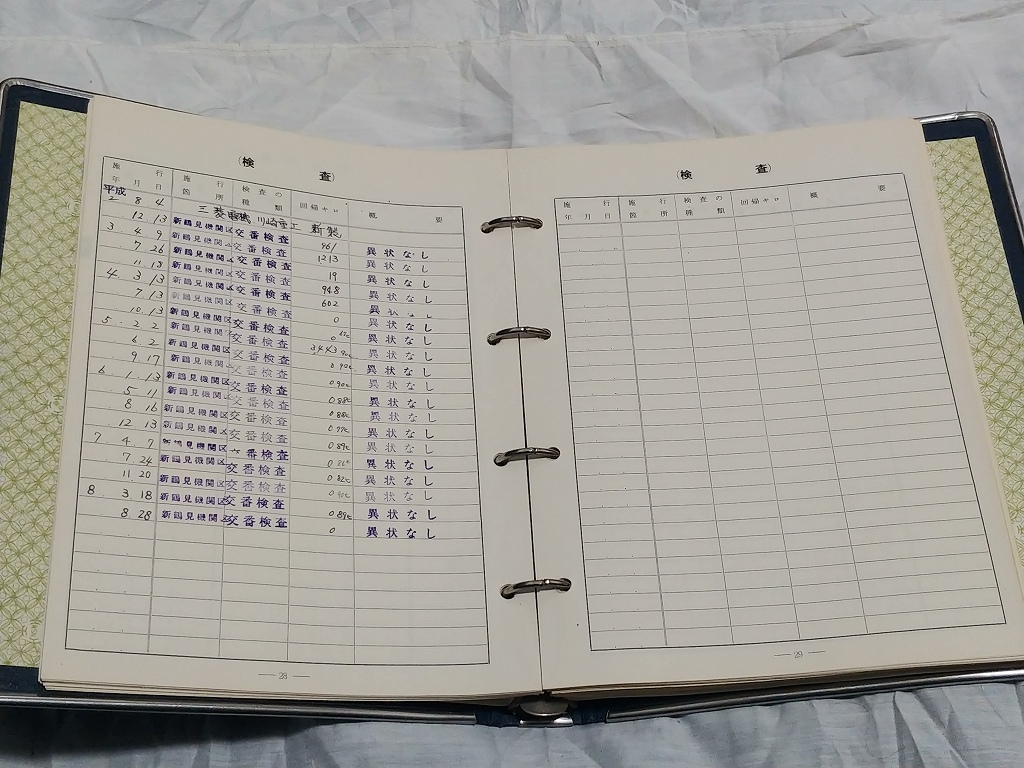 (検 査)
施 行 年 月 日 施 行 箇 所 検 査 の 種 類 回帰キロ 概 要
平成
2 8 4 三菱電機 川崎重工 新製
12 13 新鶴見機関区 交番検査 961 異状なし
3 4 9 新鶴見機関区 交番検査 1213 異状なし
7 26 新鶴見機関区 交番検査 19 異状なし
11 18 新鶴見機関区 交番検査 948 異状なし
4 3 13 新鶴見機関区 交番検査 602
7 13 新鶴見機関区 交番検査 0 異状なし
10 13 新鶴見機関区 交番検査 異状なし
5 2 2 新鶴見機関区 交番検査 異状なし
6 2 新鶴見機関区 交番検査 異状なし
9 17 新鶴見機関区 交番検査 異状なし
6 1 13 新鶴見機関区 交番検査 異状なし
5 11 新鶴見機関区 交番検査 異状なし
8 16 新鶴見機関区 交番検査 異状なし
12 13 新鶴見機関区 交番検査 異状なし
7 4 7 新鶴見機関区 交番検査 異状なし
7 24 新鶴見機関区 交番検査 異状なし
11 20 新鶴見機関区 交番検査 異状なし
8 3 18 新鶴見機関区 交番検査 異状なし
8 28 新鶴見機関区 交番検査 0 異状なし
— 28 —
(検 査)
施 行 年 月 日 施 行 箇 所 検 査 の 種 類 回帰キロ 概 要
— 29 —